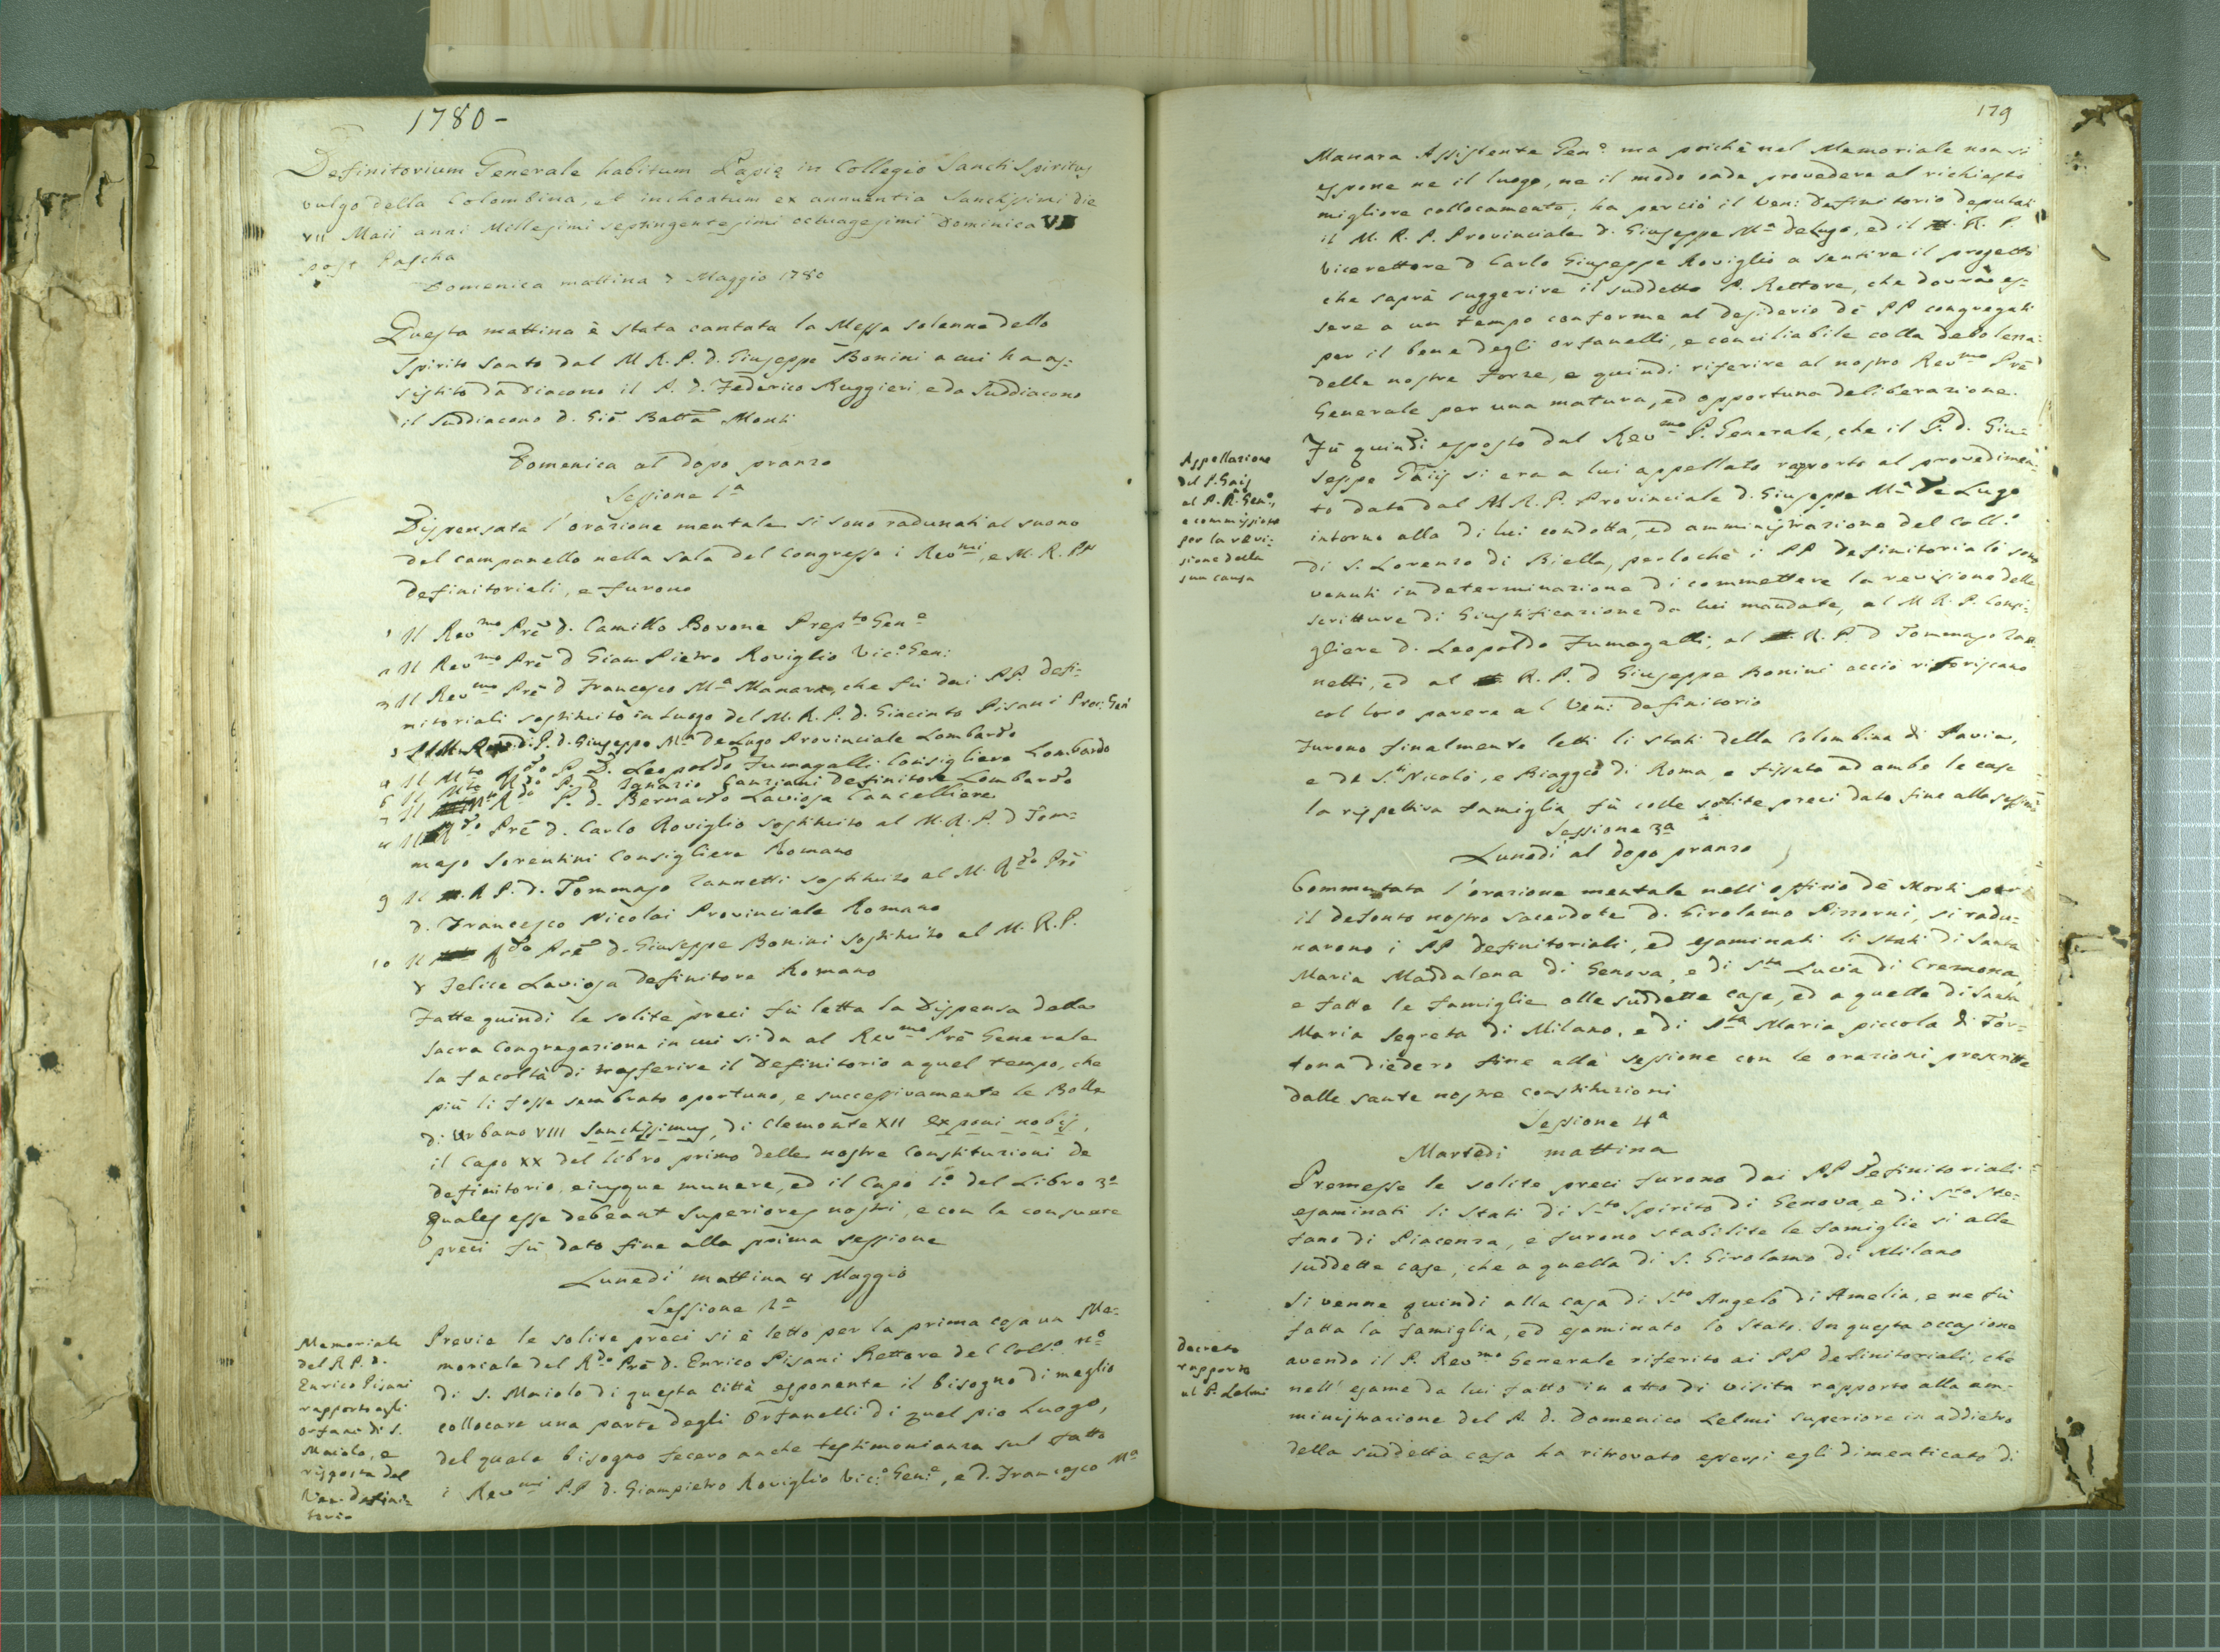 1780-
Definitorium Generale habitum Papię in Collegio Sancti Spiritus
vulgo della Colombina, et inchoatum ex annuentia Sanctissimi die
VII Maii anni Millesimi septingentesimi octuagesimi Dominica
post Pascha
Domenica mattina 7 Maggio 1780
Questa mattina è stata cantata la Messa solenne dello
Spirito Santo dal M R. P. d. Giuseppe Bonini a cui ha as-
sistito da Diacono il P. d. Federico Ruggieri, e da Suddiacono
il Suddiacono d. Gio Batta Monti
Domenica al dopo pranzo
Sessione 1ª
Dispensata l'orazione mentale si sono radunati al suono
del campanello nella sala del congresso i Revmi, e M. R. PP
Definitoriali, e furono
1 Il Revmo Prē d. Camillo Bovone Prepto Gene
2 Il Revmo Prē d Giam Pietro Roviglio Vic: Gen:
3 Il Revmo Prē d Francesco Mª Manara, che fù dai PP. Defi-
nitoriali sostituito in luogo del M. R. P. d. Giacinto Pisani Proc: Gen
P. d. Giuseppe Mª DeLugo Provinciale Lombardo
Il Mto Rdo P. D. Leopoldo Fumagalli Consigliere Lombardo
6 Il Mto Rdo P. d Ignazio Canziani Definitore Lombardo
7 Il Rdo P. d. Bernardo Laviosa Cancelliere
Il Rdo Prē d. Carlo Roviglio sostituito al M. R. P. d Tom-
maso Sorentini Consigliere Romano
9 Il R P. d. Tommaso Zannetti sostituito al M. Rdo Prē
d. Francesco Nicolai Provinciale Romano
10 Il Rdo Prē d. Giuseppe Bonini sostituito al M. R. P.
d Felice Laviosa Definitore Romano
Fatte quindi le solite preci fù letta la Dispensa della
Sacra Congregazione in cui si da al Revmo Prē Generale
la facoltà di trasferire il Definitorio a quel tempo, che
più li fosse sembrato oportuno, e successivamente le Bolle
di Urbano VIII Sanctissimus, di Clemente XII exponi nobis,
il Capo XX del libro primo delle nostre Constituzioni De
definitorio, eiusque munere, ed il Capo 1º del Libro 3º
Quales esse debeant Superiores nostri, e con le consuete
preci fù dato fine alla prima sessione
Lunedi mattina 8 Maggio
Sessione 2ª
Memoriale
del R P. d.
Enrico Pisani
rapporto agli
orfani di S.
Maiolo, e
risposta del
Ven. Defini-
torio
Previe le solite preci si è letto per la prima cosa un Me-
moriale del Rdo Prē d. Enrico Pisani Rettore del Collo nº
di S. Maiolo di questa Città esponente il bisogno di meglio
collocare una parte degli Orfanelli di quel pio Luogo,
del quale bisogno fecero anche testimonianza sul fatto
i Revmi P.P d. Giampietro Roviglio Vic: Gene, e d. Francesco Mª
179
Manara Assistente Geno: ma poichè nel Memoriale non si
espone ne il luogo, ne il modo onde provedere al richiesto
migliore collocamento, ha perciò il Ven: Definitorio deputati
il M. R. P. Provinciale d. Giuseppe Mª deLugo, ed il R. P.
Vicerettore d Carlo Giuseppe Roviglio a sentire il progetto
che saprà suggerire il suddetto P. Rettore, che dovrà es-
sere a un tempo conforme al desiderio dè PP congregati
per il bene degli orfanelli, e conciliabile colla debolezza
delle nostre forze, e quindi riferire al nostro Revmo Prē
Generale per una matura, ed opportuna deliberazione.
Appellazione
del P. Gaij
al P. R. Gene,
e commissione
per la revi-
sione della
sua causa
Fù quindi esposto dal Revmo P. Generale, che il P. d. Giu-
seppe Gaij si era a lui appellato rapporto al provedimen-
to dato dal M R. P. Provinciale d. Giuseppe Mª De Lugo
intorno alla di lui condotta, ed amministrazione del Coll:
di S. Lorenzo di Biella, perlochè i PP Definitoriali sono
venuti in determinazione di commettere la revisione delle
scritture di Giustificazione da lui mandate, al M R. P. Consi-
gliere d. Leopoldo Fumagalli, al R. P. d Tommaso Zan-
netti, ed al R. P. d Giuseppe Bonini acciò riferiscano
col loro parere al Ven: Definitorio
Furono finalmente letti li stati della Colombina di Pavia,
e di Sti Nicolò, e Biaggio di Roma, e fissata ad ambe le case
la rispettiva famiglia fù colle solite preci dato fine alla sessione
Sessione 3ª
Lunedi al dopo pranzo
Commutata l'orazione mentale nell'offizio dè Morti per
il defonto nostro sacerdote d. Girolamo Pizzorni, si radu-
narono i PP Definitoriali, ed esaminati li stati di Santa
Maria Maddalena di Genova, e di Sta Lucia di Cremona,
e fatte le famiglie alle suddette case, ed a quelle di Santa
Maria Segreta di Milano, e di Sta Maria piccola di Tor-
tona diedero fine alla sessione con le orazioni prescritte
dalle sante nostre constituzioni
Sessione 4ª
Martedi mattina
Premesse le solite preci furono dai PP Definitoriali
esaminati li stati di Sto Spirito di Genova, e di Sto Ste-
fano di Piacenza, e furono stabilite le famiglie si alle
suddette case, che a quella di S. Girolamo di Milano
Decreto
rapporto
al P. Lelmi
Si venne quindi alla casa di Sto Angelo di Amelia, e ne fù
fatta la famiglia, ed esaminato lo stato. In questa occasione
avendo il P. Revmo Generale riferito ai PP definitoriali, che
nell'esame da lui fatto in atto di visita rapporto alla am-
ministrazione del P. d. Domenico Lelmi superiore in addietro
della suddetta casa ha ritrovato essersi egli dimenticato di